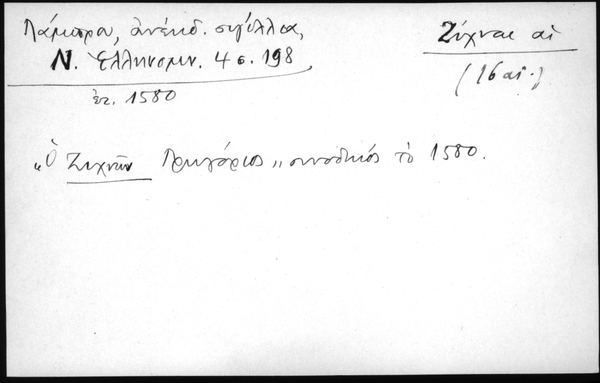 Λάμπρου, ἀνέκδ. σιγίλλια,
Ν. Ἑλληνομν. 4 σ. 198
ἔτ. 1580
Ζίχναι αἱ
(16 αἰ.)
„Ὁ Ζιχνῶν Γρηγόριος„ συνοδικός τὸ 1580.